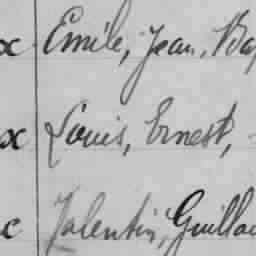 x Emile, Jean, Ba
x Louis, Ernest,
c Valentin, Guilla